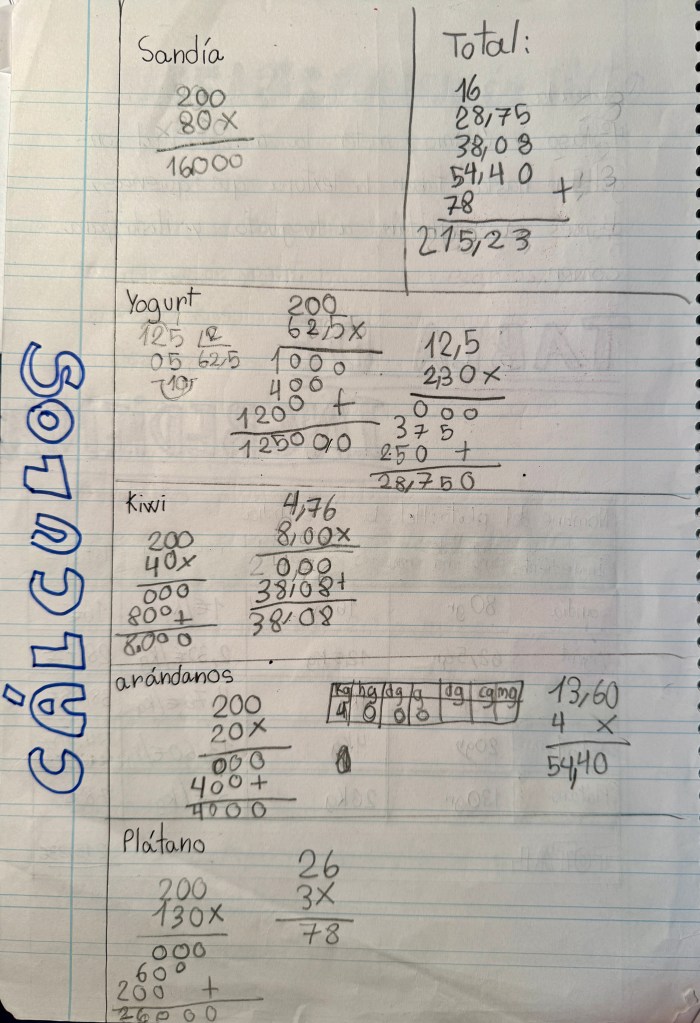 SOLUCIÓNS
Sandía
200
80x
16000
Total:
16
28,75
38,08
54,40
78 +
215,23
Yogurt
125 12
05 62,5
10
200
62,5x
1000
400
1200 +
12500,0
12,5
2,30x
000
375
250 +
28,750
Kiwi
200
40x
000
800+
8.000
4,76
8,00x
0,00
38,08+
38,08
arándanos
200
20x
000
400+
4000
kg hg dg g dg cg mg
4 0 0 0
13,60
4 x
54,40
Plátano
200
130x
000
600
200 +
26000
26
3x
78